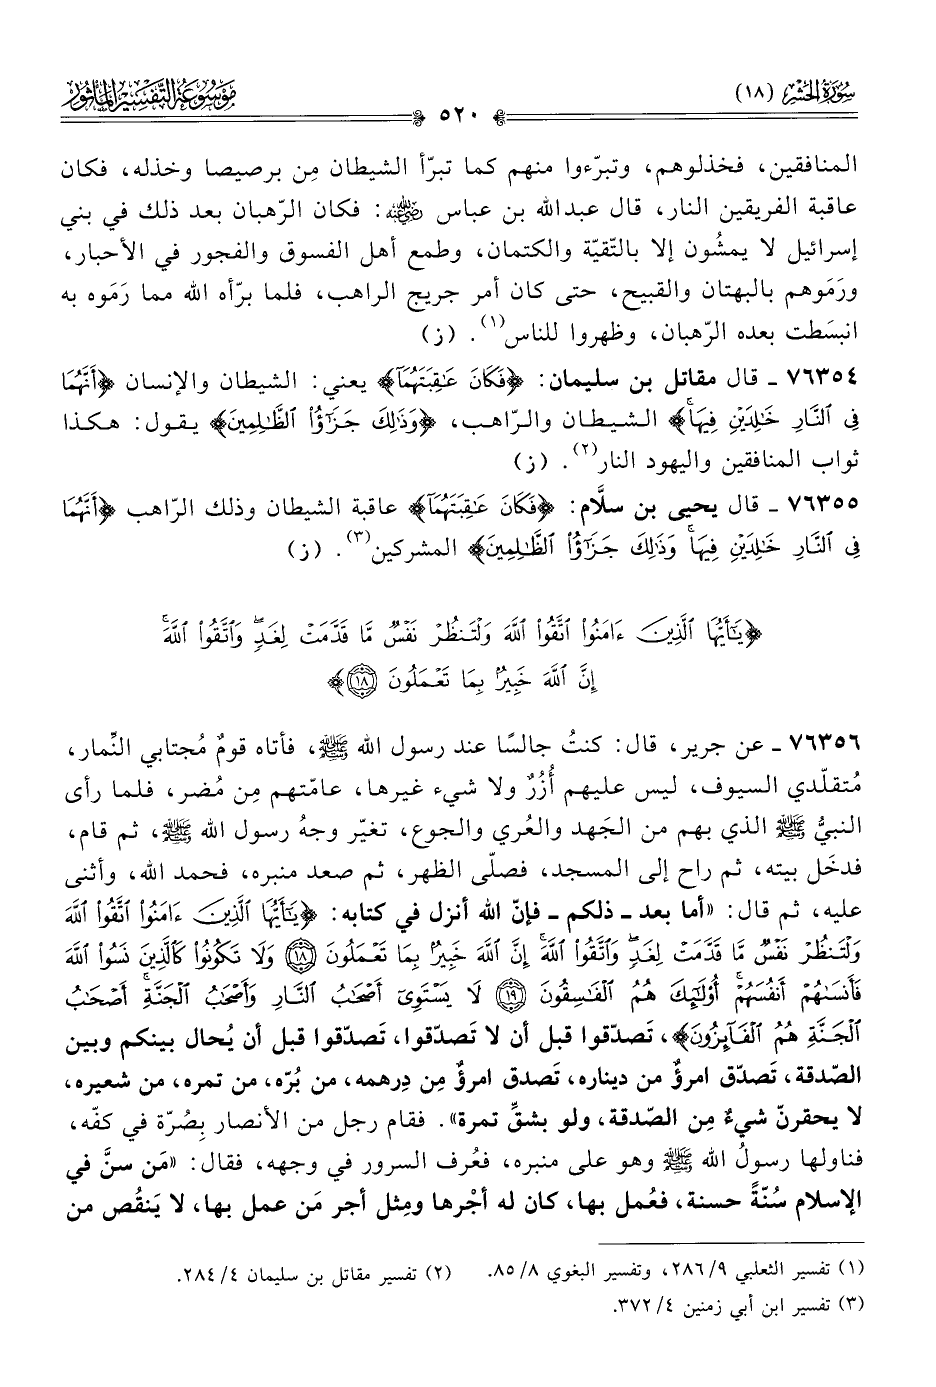 سُورَةُ الحَشْرِ (١٨)
٥٢٠
مَوْسُوعَةُ التَّفْسِيْرِ المَأْثُورِ
المنافقين، فخذلوهم، وتبرّءوا منهم كما تبرّأ الشيطان مِن برصيصا وخذله، فكان
عاقبة الفريقين النار، قال عبدالله بن عباس ﵁: فكان الرّهبان بعد ذلك في بني
إسرائيل لا يمشُون إلا بالتّقيّة والكتمان، وطمع أهل الفسوق والفجور في الأحبار،
ورَمَوهم بالبهتان والقبيح، حتى كان أمر جريج الراهب، فلما برّأه الله مما رَمَوه به
انبسَطت بعده الرّهبان، وظهروا للناس(١). (ز)
٧٦٣٥٤ ـ قال مقاتل بن سليمان: ﴿فَكَانَ عَٰقِبَتَهُمَآ﴾ يعني: الشيطان والإنسان ﴿أَنَّهُمَا
فِى ٱلنَّارِ خَٰلِدَيْنِ فِيهَاۚ﴾ الشيطان والرّاهب، ﴿وَذَٰلِكَ جَزَٰٓؤُا۟ ٱلظَّٰلِمِينَ﴾ يقول: هكذا
ثواب المنافقين واليهود النار(٢). (ز)
٧٦٣٥٥ ـ قال يحيى بن سلَّام: ﴿فَكَانَ عَٰقِبَتَهُمَآ﴾ عاقبة الشيطان وذلك الرّاهب ﴿أَنَّهُمَا
فِى ٱلنَّارِ خَٰلِدَيْنِ فِيهَاۚ وَذَٰلِكَ جَزَٰٓؤُا۟ ٱلظَّٰلِمِينَ﴾ المشركين(٣). (ز)
﴿يَٰٓأَيُّهَا ٱلَّذِينَ ءَامَنُوا۟ ٱتَّقُوا۟ ٱللَّهَ وَلْتَنظُرْ نَفْسٌ مَّا قَدَّمَتْ لِغَدٍۖ وَٱتَّقُوا۟ ٱللَّهَۚ
إِنَّ ٱللَّهَ خَبِيرٌۢ بِمَا تَعْمَلُونَ ١٨﴾
٧٦٣٥٦ ـ عن جرير، قال: كنتُ جالسًا عند رسول الله ﷺ، فأتاه قومٌ مُجتابي النِّمار،
مُتقلّدي السيوف، ليس عليهم أُزُرٌ ولا شيء غيرها، عامّتهم مِن مُضر، فلما رأى
النبيُّ ﷺ الذي بهم من الجَهد والعُري والجوع، تغيّر وجهُ رسول الله ﷺ، ثم قام،
فدخَل بيته، ثم راح إلى المسجد، فصلّى الظهر، ثم صعد منبره، فحمد الله، وأثنى
عليه، ثم قال: «أما بعد ـ ذلكم ـ فإنّ الله أنزل في كتابه: ﴿يَٰٓأَيُّهَا ٱلَّذِينَ ءَامَنُوا۟ ٱتَّقُوا۟ ٱللَّهَ
وَلْتَنظُرْ نَفْسٌ مَّا قَدَّمَتْ لِغَدٍۖ وَٱتَّقُوا۟ ٱللَّهَۚ إِنَّ ٱللَّهَ خَبِيرٌۢ بِمَا تَعْمَلُونَ ١٨ وَلَا تَكُونُوا۟ كَٱلَّذِينَ نَسُوا۟ ٱللَّهَ
فَأَنسَىٰهُمْ أَنفُسَهُمْۚ أُو۟لَٰٓئِكَ هُمُ ٱلْفَٰسِقُونَ ١٩ لَا يَسْتَوِىٓ أَصْحَٰبُ ٱلنَّارِ وَأَصْحَٰبُ ٱلْجَنَّةِۚ أَصْحَٰبُ
ٱلْجَنَّةِ هُمُ ٱلْفَآئِزُونَ﴾، تَصدّقوا قبل أن لا تَصدّقوا، تَصدّقوا قبل أن يُحال بينكم وبين
الصّدقة، تَصدّق امرؤٌ من ديناره، تَصدق امرؤٌ مِن دِرهمه، من بُرّه، من تمره، من شعيره،
لا يحقرنّ شيءٌ مِن الصّدقة، ولو بشقِّ تمرة». فقام رجل من الأنصار بِصُرّة في كفّه،
فناولها رسولُ الله ﷺ وهو على منبره، فعُرف السرور في وجهه، فقال: «مَن سنَّ في
الإسلام سُنّةً حسنة، فعُمل بها، كان له أجْرها ومِثل أجر مَن عمل بها، لا يَنقُص من
(١) تفسير الثعلبي ٢٨٦/٩، وتفسير البغوي ٨٥/٨. (٢) تفسير مقاتل بن سليمان ٢٨٤/٤.
(٣) تفسير ابن أبي زمنين ٣٧٢/٤.